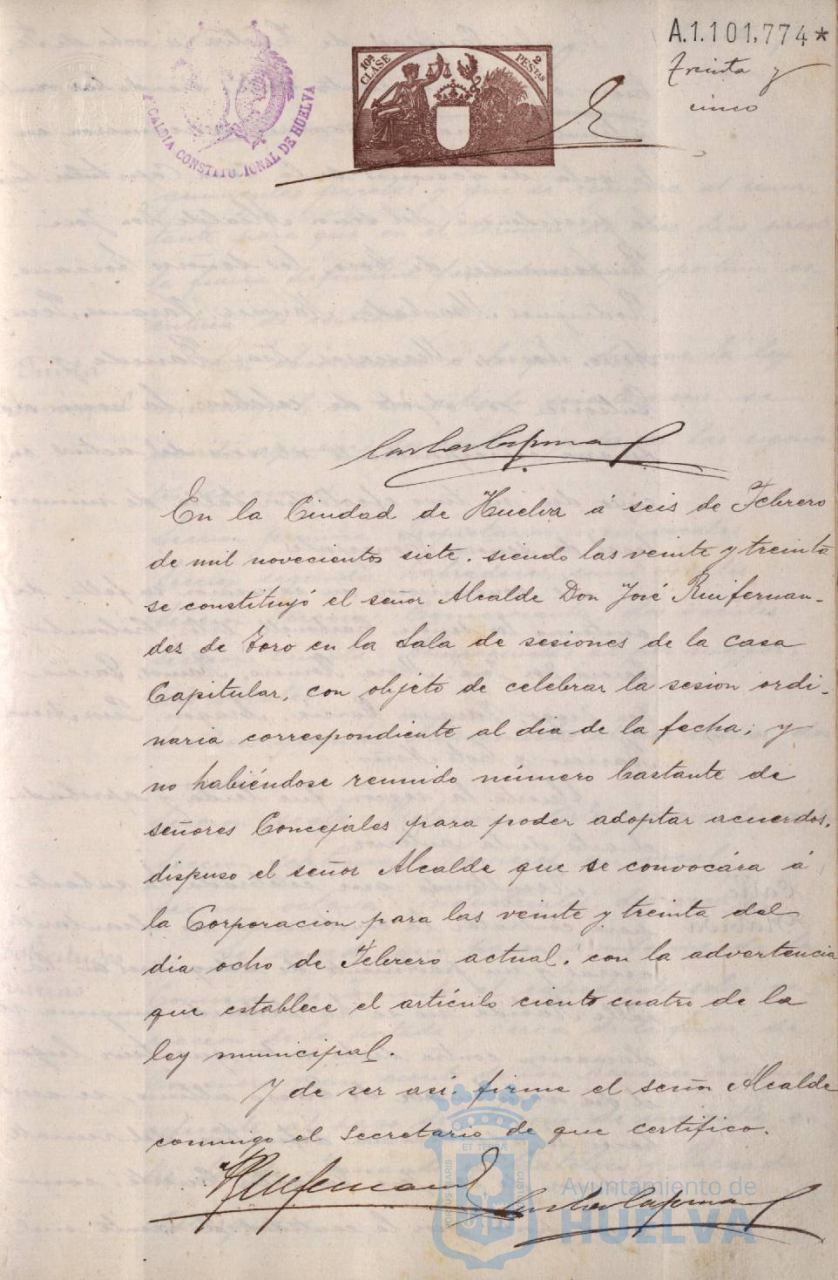 A.1.101,774*
treinta y
cinco
10ª CLASE
2 PESETAS
ALCALDIA CONSTITUCIONAL DE HUELVA
En la Ciudad de Huelva á seis de Febrero
de mil novecientos siete. siendo las veinte y treinta
se constituyó el señor Alcalde Don José Ruifernan-
dez de Toro en la Sala de sesiones de la casa
Capitular, con objeto de celebrar la sesion ordi-
naria correspondiente al dia de la fecha; y
no habiéndose reunido número bastante de
señores Concejales para poder adoptar acuerdos.
dispuso el señor Alcalde que se convocára á
la Corporacion para las veinte y treinta del
dia ocho de Febrero actual. con la advertencia
que establece el artículo ciento cuatro de la
ley municipal.
Y de ser asi firme el señor Alcalde
conmigo el Secretario de que certifico.
Ayuntamiento de
HUELVA